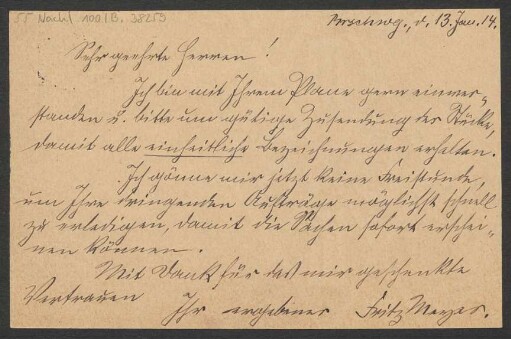 55 Nachl 100/B, 38259
Braschwg., d. 13. Jan. 14.
Sehr geehrte Herren!
Ich bin mit Ihrem Plane gern einver-
standen u. bitte um gütige Zusendung der Stücke,
damit alle einheitliche Bezeichnungen erhalten.
Ich gönne mir jetzt keine Freistunde,
um Ihre dringenden Aufträge möglichst schnell
zu erledigen, damit die Sachen sofort erschei-
nen können.
Mit Dank für das mir geschenkte
Vertrauen Ihr ergebener Fritz Meyer.